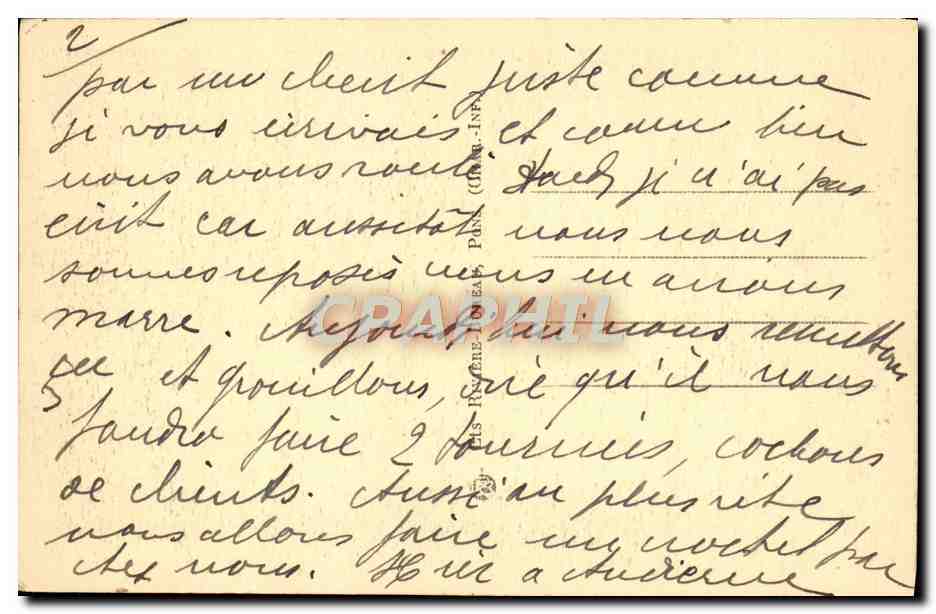 2/
par un client juste comme
je vous écrivais et comme bien
nous avons roulé je n'ai pas
écrit car aussitôt nous nous
sommes reposés nous en avions
marre. Aujourd'hui nous remettons
ça et grouillons, vu qu'il nous
faudra faire 2 tournées, cochons
de clients. Aussi au plus vite
nous allons faire un crochet par
chez nous. Hier à Audierne
Ets RIVIÈRE-BUREAU, PONS (CHAR.-INF.)
CRAPHIL